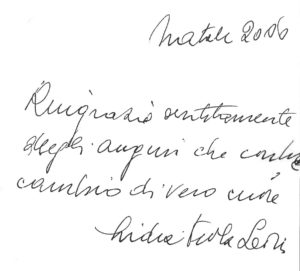 Natale 2006
Ringrazio sentitamente
degli auguri che contrac
cambio di vero cuore
Lidia